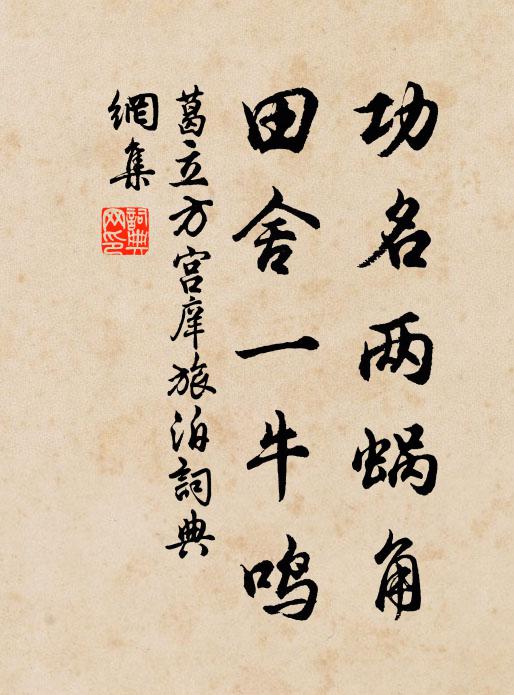 功名两蜗角
田舍一牛鸣
葛立方宫庠旅泊詞典
網集
詞典网印